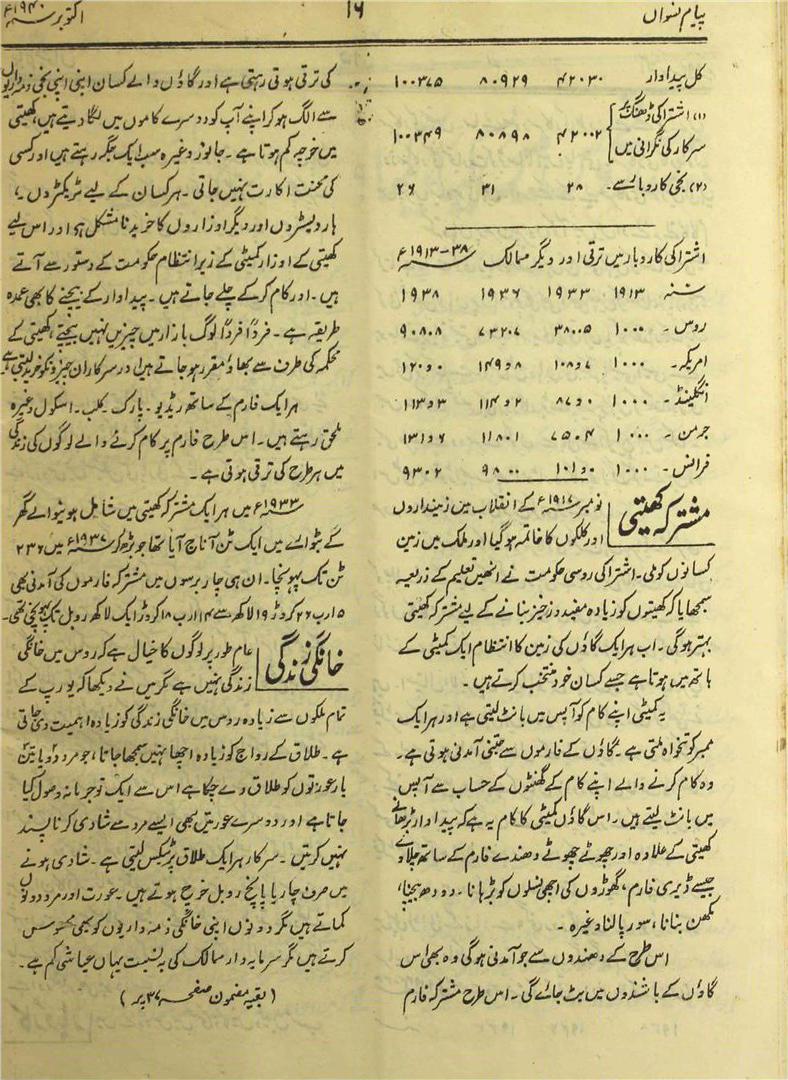 پیام نسواں
۱۶
اکتوبر سنہ ۱۹۴۰ء
کل پیداوار ۴۲۰۳۰ ۸۰۹۲۹ ۱۰۰۳۷۵
(۱) اشتراکی ڈھنگ پر
سرکار کی نگرانی میں ۴۲۰۰۲ ۸۰۸۹۸ ۱۰۰۳۴۹
(۲) نجی کاروبار سے۔ ۲۸ ۳۱ ۲۶
اشتراکی کاروبار میں ترقی اور دیگر ممالک سنہ ۳۸-۱۹۱۳ء
سنہ ۱۹۱۳ ۱۹۳۳ ۱۹۳۶ ۱۹۳۸
روس۔ ۱۰۰۰ ۳۸۰۰۵ ۷۳۲۰۷ ۹۰۸۰۸
امریکہ۔ ۱۰۰۰ ۱۰۸۰۷ ۱۴۹۰۸ ۱۲۰۰۰
انگلینڈ۔ ۱۰۰۰ ۸۷۰۰ ۱۱۴۰۲ ۱۱۳۰۳
جرمن۔ ۱۰۰۰ ۷۵۰۴ ۱۱۸۰۱ ۱۳۱۰۶
فرانس۔ ۱۰۰۰ ۱۰۱۰۰ ۹۸۰۰ ۹۳۰۲
مشترکہ کھیتی
نومبر سنہ ۱۹۱۷ء کے انقلاب میں زمینداروں
اور کلکوں کا خاتمہ ہو گیا اور ملک میں زمین
کسانوں کو ملی۔ اشتراکی روسی حکومت نے انھیں تعلیم کے ذریعہ
سمجھایا کہ کھیتوں کو زیادہ مفید و زرخیز بنانے کے لیے مشترکہ کھیتی
بہتر ہوگی۔ اب ہر ایک گاؤں کی زمین کا انتظام ایک کمیٹی کے
ہاتھ میں ہوتا ہے جسے کسان خود منتخب کرتے ہیں۔
یہ کمیٹی اپنے کام کو آپس میں بانٹ لیتی ہے اور ہر ایک
ممبر کو تنخواہ ملتی ہے۔ گاؤں کے فارموں سے جتنی آمدنی ہوتی ہے۔
وہ کام کرنے والے اپنے کام کے گھنٹوں کے حساب سے آپس
میں بانٹ لیتے ہیں۔ اس گاؤں کمیٹی کا کام یہ ہے کہ پیداوار بڑھائے
کھیتی کے علاوہ اور چھوٹے چھوٹے دھندے فارم کے ساتھ چلاوے
جیسے ڈیری فارم، گھوڑوں کی اچھی نسلوں کو بڑھانا۔ دودھ بیچنا،
مکھن بنانا، سور پالنا وغیرہ۔
اس طرح کے دھندوں سے جو آمدنی ہوگی وہ بھی اس
گاؤں کے باشندوں میں بٹ جائے گی۔ اس طرح مشترکہ فارم
کی ترقی ہوتی رہتی ہے اور گاؤں والے کسان اپنی اپنی نجی ذمہ داریوں
سے الگ ہو کر اپنے آپ کو دوسرے کاموں میں لگا دیتے ہیں، کھیتی
میں خرچہ کم ہوتا ہے۔ جانور وغیرہ سب ایک جگہ رہتے ہیں اور کسی
کی محنت اکارت نہیں جاتی۔ ہر کسان کے لیے ٹریکٹروں،
ہارویسٹروں اور دیگر اوزاروں کا خریدنا مشکل ہے اور اس لیے
کھیتی کے اوزار کمیٹی کے زیر انتظام حکومت کے دستور سے آتے
ہیں۔ اور کام کر کے چلے جاتے ہیں۔ پیداوار کے بیچنے کا بھی عمدہ
طریقہ ہے۔ فرداً فرداً لوگ بازار میں چیزیں نہیں بیچتے، کھیتی کے
محکمہ کی طرف سے بھاؤ مقرر ہو جاتے ہیں اور سرکار ان چیزونکو خرید لیتی ہے۔
ہر ایک فارم کے ساتھ ریڈیو۔ پارک۔ کلب۔ اسکول وغیرہ
ملحق رہتے ہیں۔ اس طرح فارم پر کام کرنے والے لوگوں کی زندگی
میں ہر طرح کی ترقی ہوتی ہے۔
سنہ ۱۹۳۳ء میں ہر ایک مشترکہ کھیتی میں شامل ہونیوالے گھر
کے بٹوارے میں ایک ٹن آناج آیا تھا جو بڑھ کر سنہ ۱۹۳۷ء میں ۲۳۶
ٹن تک پہونچا۔ ان ہی چار برسوں میں مشترکہ فارموں کی آمدنی بھی
۵ ارب ۲۶ کروڑ ۱۹ لاکھ سے ۱۴ ارب ۱۸ کروڑ ایک لاکھ روبل تک پہونچی تھی۔
خانگی زندگی
عام طور پر لوگوں کا خیال ہے کہ روس میں خانگی
زندگی نہیں ہے مگر میں نے دیکھا کہ یورپ کے
تمام ملکوں سے زیادہ روس میں خانگی زندگی کو زیادہ اہمیت دی جاتی
ہے۔ طلاق کے رواج کو زیادہ اچھا نہیں سمجھا جاتا، جو مرد دو یا تین
بار عورتوں کو طلاق دے چکا ہے اس سے ایک تو جرمانہ وصول کیا
جاتا ہے اور دوسرے عورتیں بھی ایسے مرد سے شادی کرنا پسند
نہیں کرتیں۔ سرکار ہر ایک طلاق پر ٹیکس لیتی ہے۔ شادی ہونے
میں صرف چار یا پانچ روبل خرچ ہوتے ہیں۔ عورت اور مرد دونوں
کماتے ہیں مگر دونوں اپنی خانگی ذمہ داریوں کو بھی محسوس
کرتے ہیں مگر سرمایہ دار ممالک کی بہ نسبت یہاں عیاشی کم ہے۔
(بقیہ مضمون صفحہ ۳۷ پر)